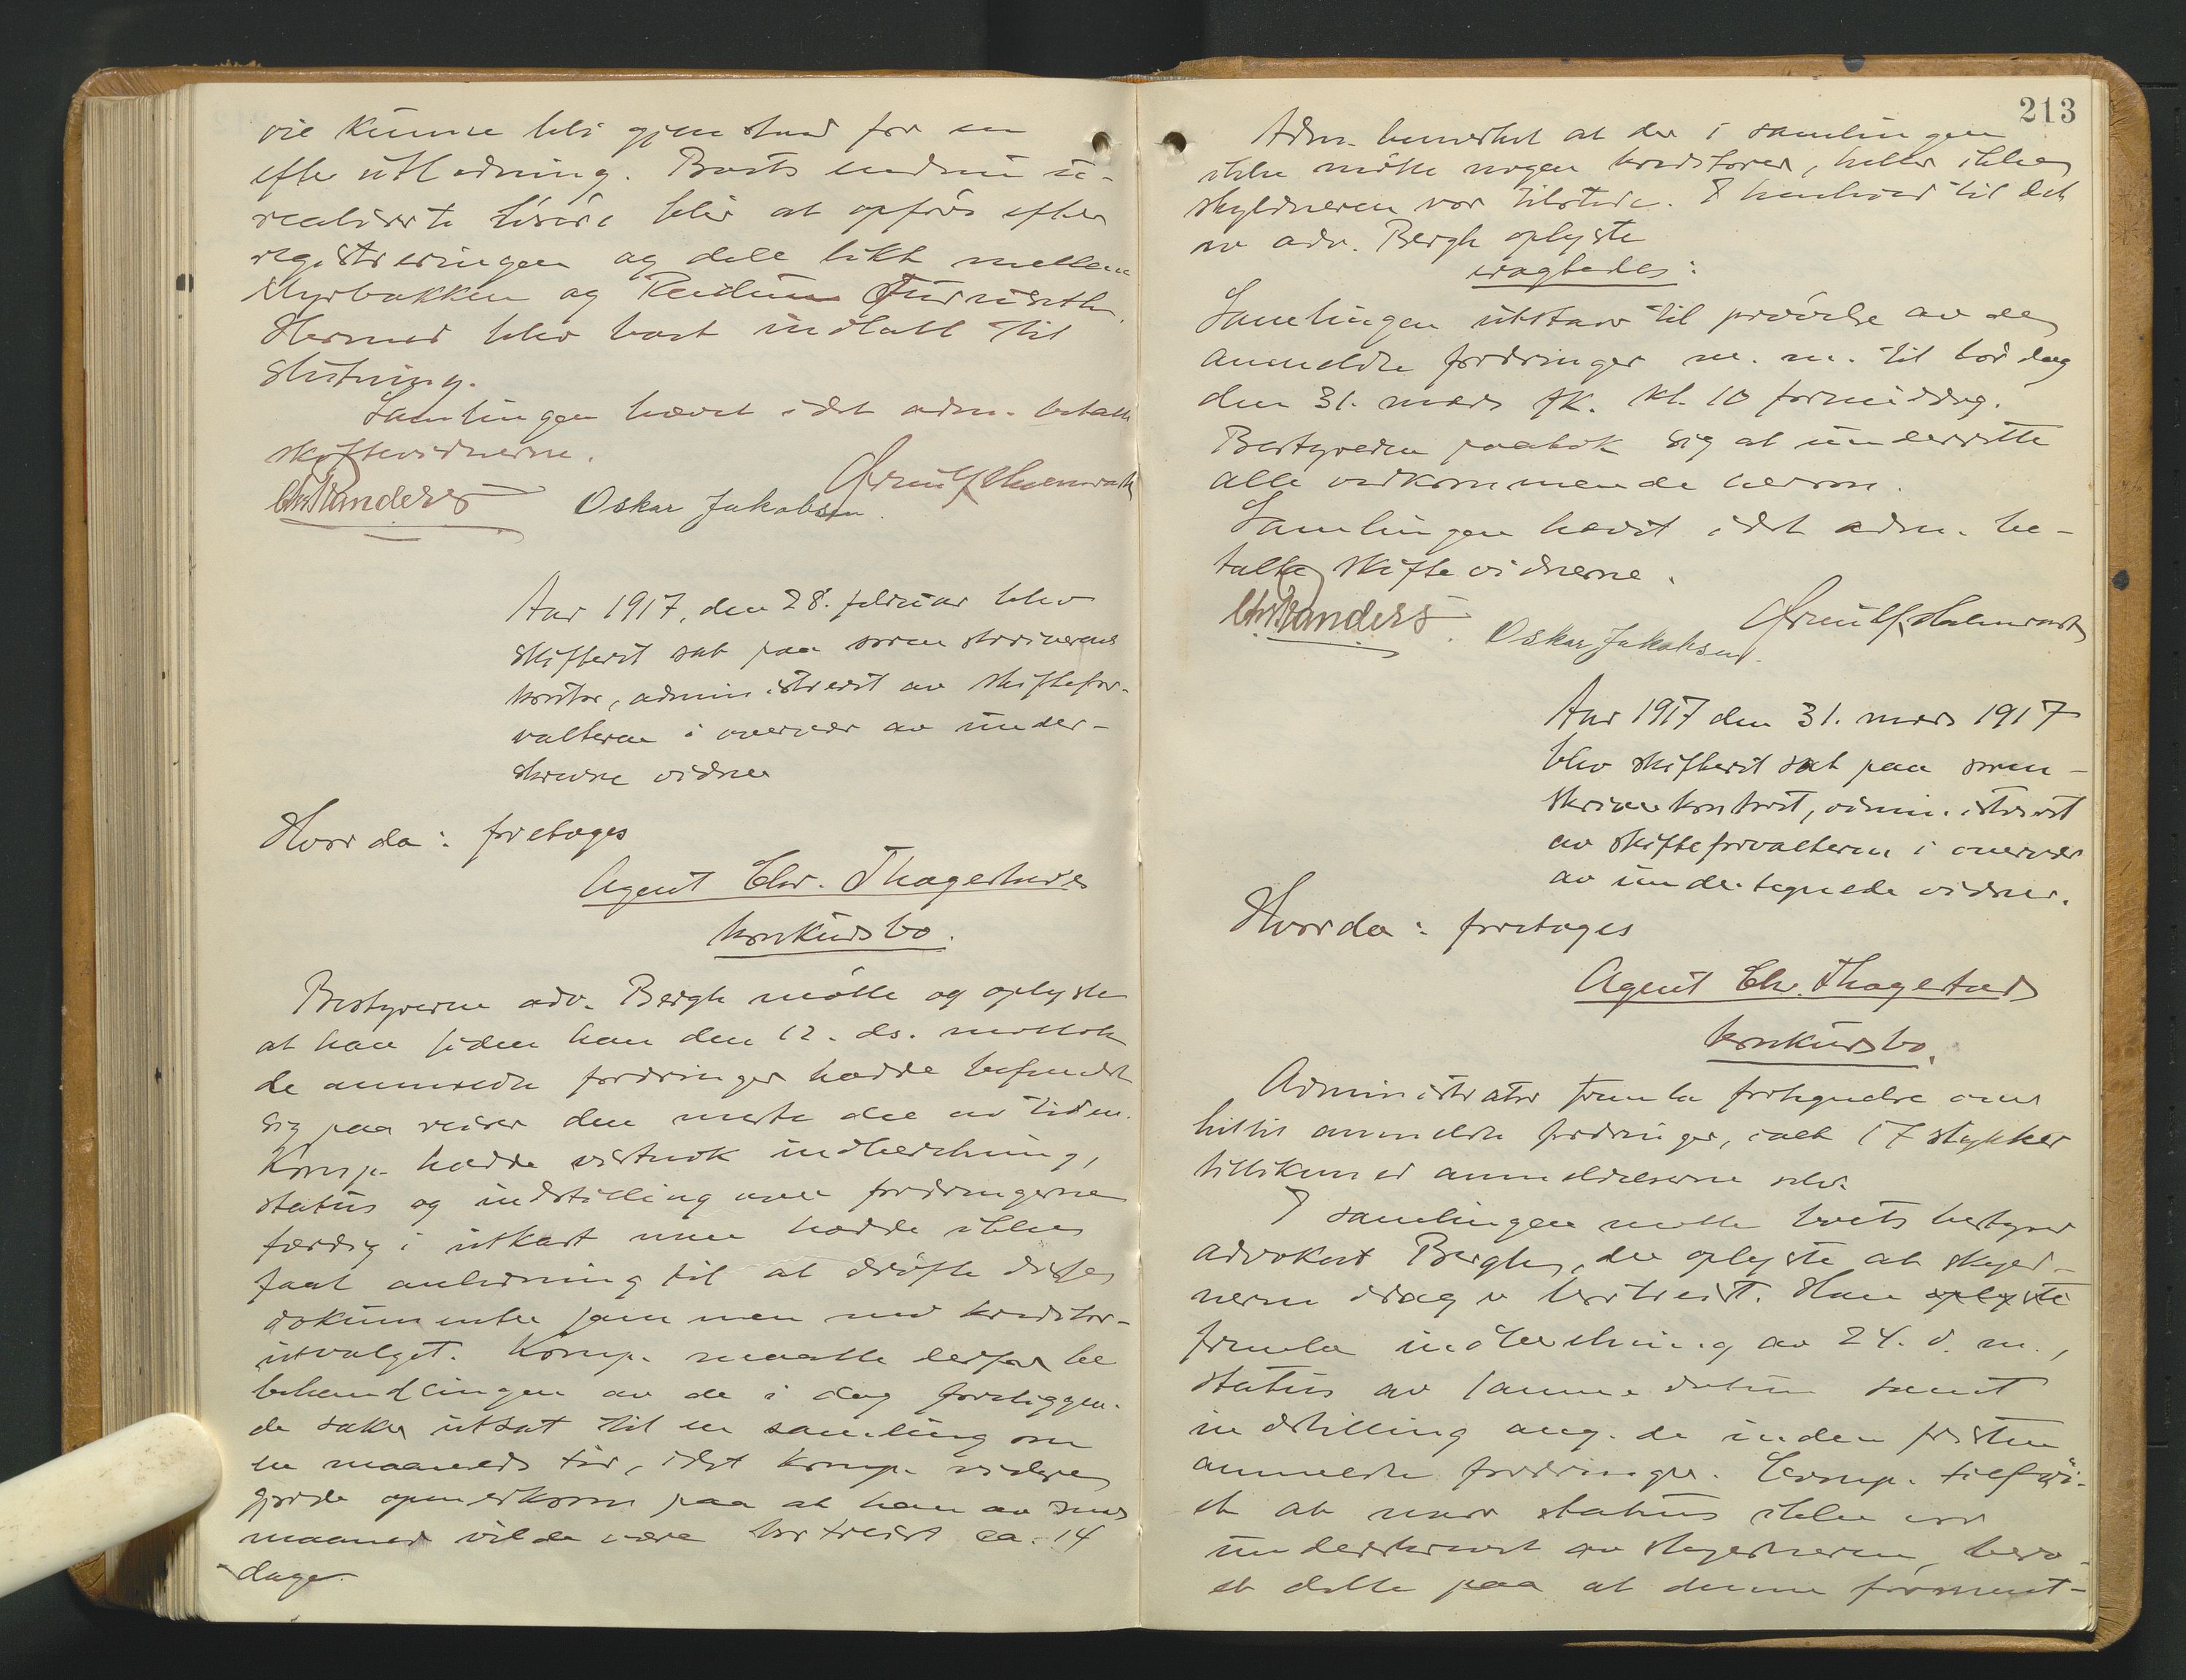 vil kunne bli gjenstand for en
efterutlodning. Boets endnu u-
realiserte løsøre blir at opføre efter
registreringen og dele likt mellem
Myrbakken og Furuseth.
Hermed blev boet indtatt til
slutning.
Samlingen hævet idet adm. betalte
skiftevidnerne.
Chr. Randers Oskar Jakobsen
Aar 1917, den 28. februar blev
skifteret sat paa sorenskriverens
kontor, administrert av skiftefor-
valteren i overvær av under-
skrevne vidner
Hvorda: foretoges
Agent Chr. Thagestads
konkursbo.
Bestyreren adv. Bergh møtte og oplyste
at han siden han den 12. ds. mottok
de anmeldte fordringer hadde befundet
sig paa reiser den meste del av tiden.
Komp. hadde vistnok indberetning,
status og indstilling over fordringerne
færdig i utkast men hadde ikke
faat anledning til at drøfte disse
dokumenter sammen med kreditor-
utvalget. Komp. maatte derfor be
behandlingen av de i dag foreliggen-
de saker utsat til en samling om
en maaneds tid, idet komp. videre
gjorde opmerksom paa at han av
maaned vilde være bortreist ca. 14
dage.
213
Adm. bemerket at der i samlingen
ikke møtte nogen kreditorer, heller ikke
skyldneren var tilstede. I henhold til det
av adv. Bergh oplyste
eragtedes:
Samlingen utstaar til prøvelse av de
anmeldte fordringer m. m. til lørdag
den 31. mars fk. kl. 10 formiddag.
Bestyreren paatok sig at underrette
alle vedkommende herom.
Samlingen hævet idet adm. be-
talte skiftevidnerne.
Chr. Randers Oskar Jakobsen.
Aar 1917 den 31. mars 1917
blev skifteret sat paa soren-
skriverkontoret, administrert
av skifteforvalteren i overvær
av undertegnede vidner.
Hvorda: foretoges
Agent Chr. Thagestads
konkursbo.
Administrator fremla fortegnelse over
hittil anmeldte fordringer, ialt 17 stykker
tillikemed anmeldelserne selv.
I samlingen møtte boets bestyrer
advokat Bergh, der oplyste at skyld-
neren idag er bortreist. Han oplyste
fremla indberetning av 24. d. m.,
status av samme datum samt
indstilling ang. de inden fristen
anmeldte fordringer. Comp. tilføi-
et at naar status ikke var
underskrevet av skyldneren, bero-
et dette paa at denne forment-